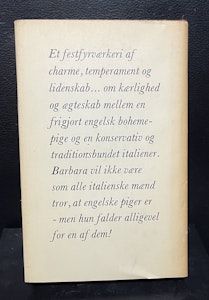 Et festfyrværkeri af
charme, temperament og
lidenskab... om kærlighed
og ægteskab mellem en
frigjort engelsk boheme-
pige og en konservativ og
traditionsbundet italiener.
Barbara vil ikke være
som alle italienske mænd
tror, at engelske piger er
- men hun falder alligevel
for en af dem!